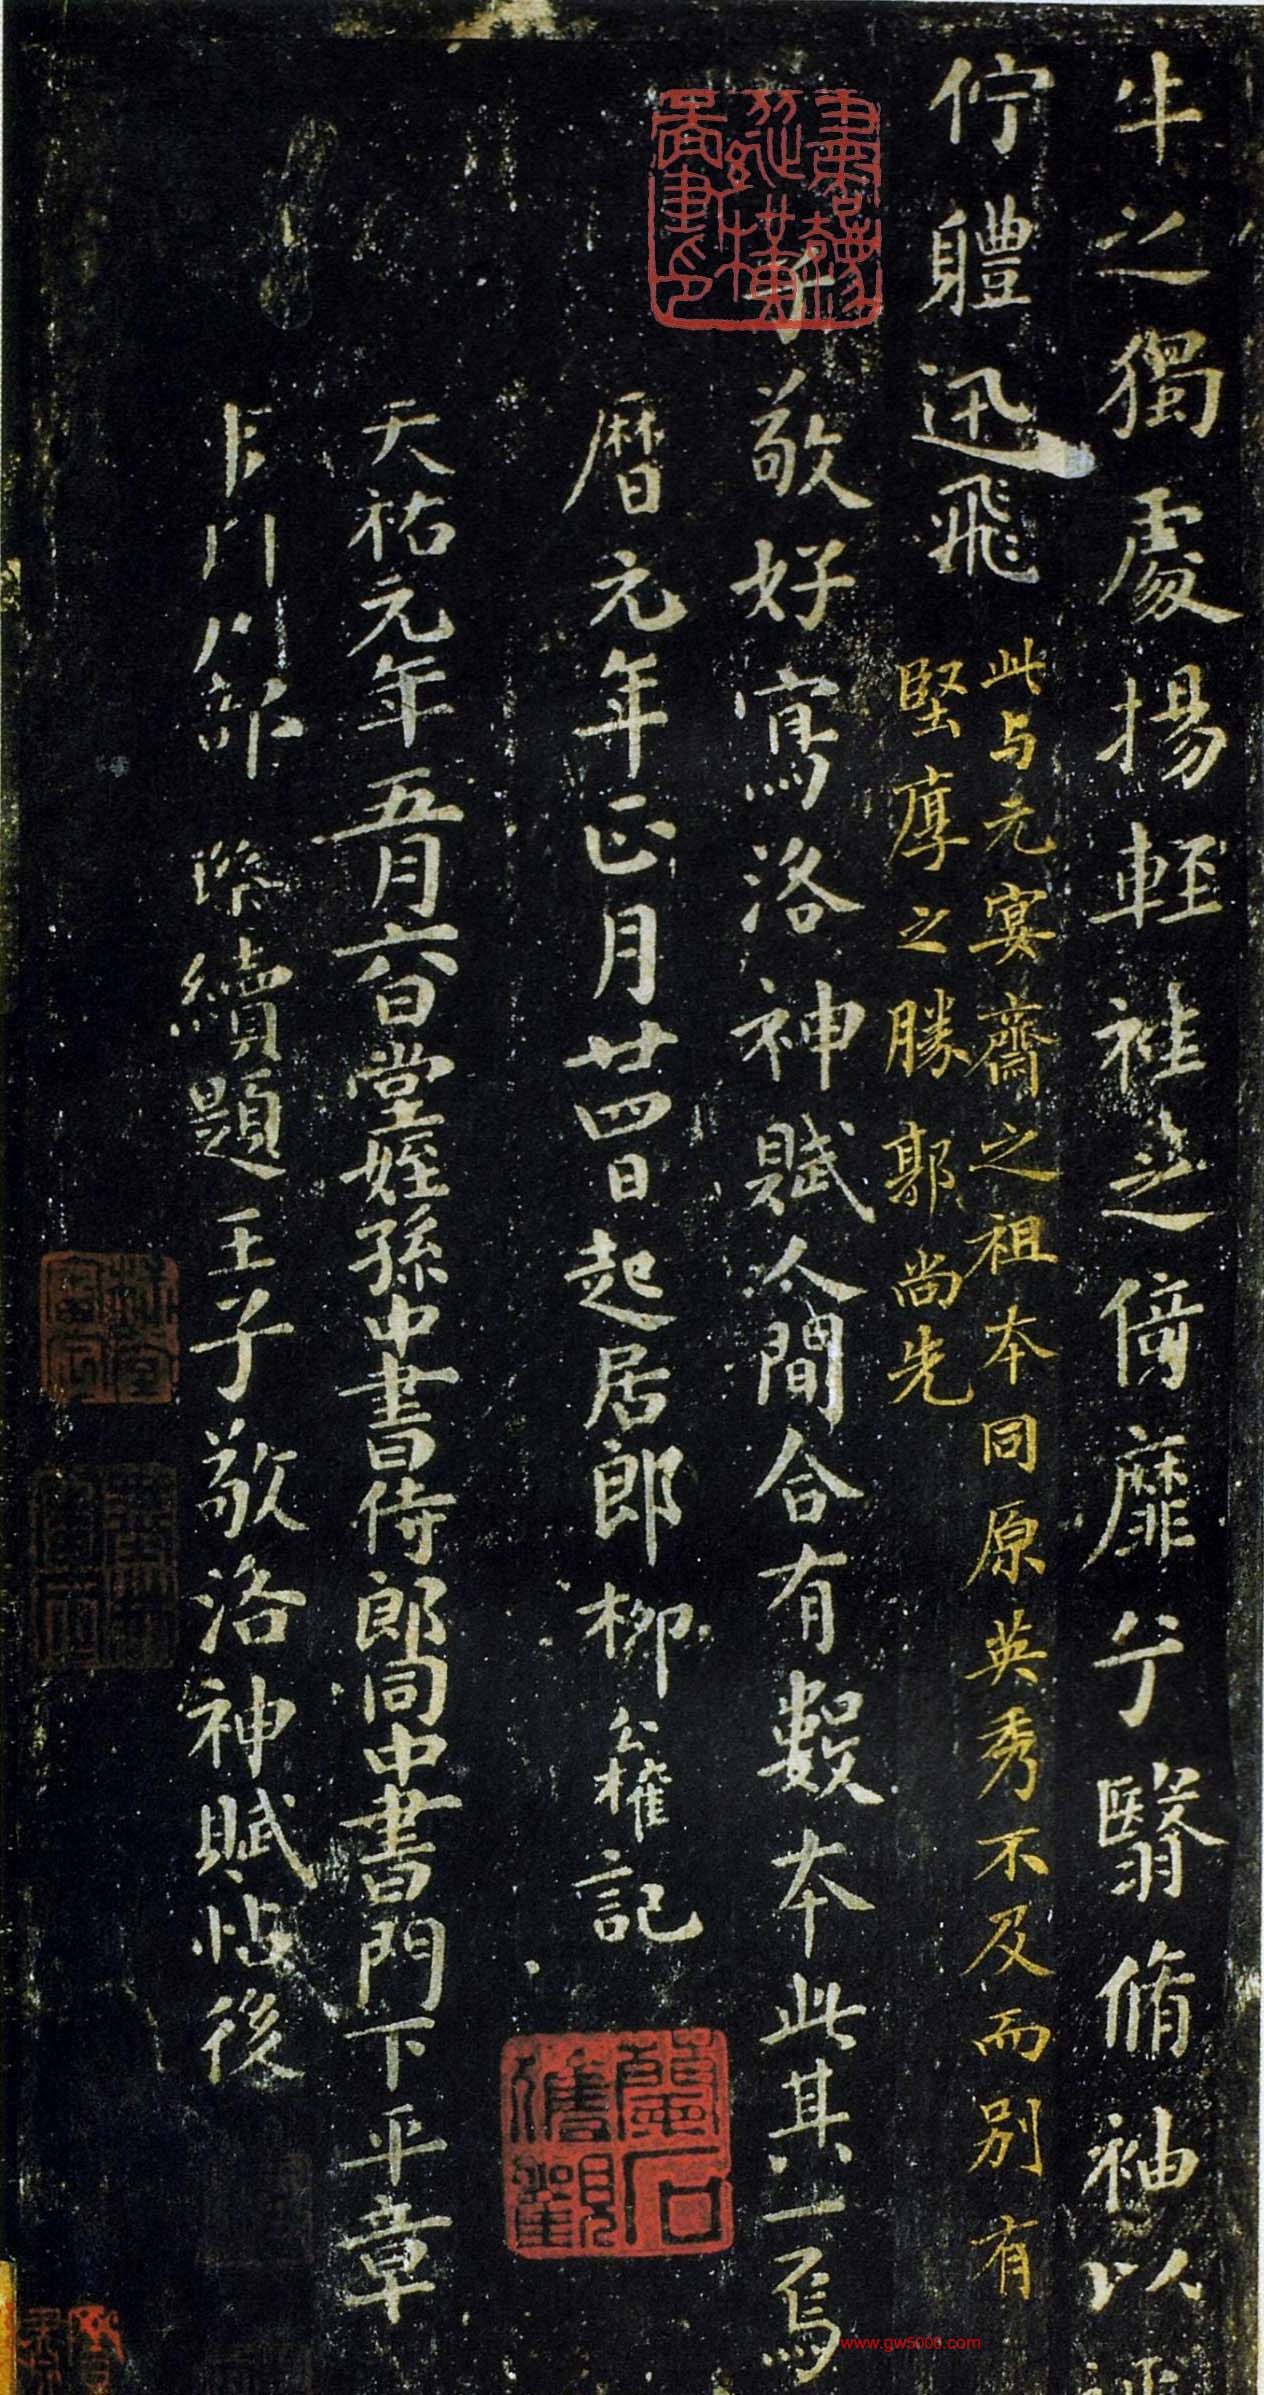 牛之獨處揚輕袿之倚靡兮翳脩袖以延
佇體迅飛
此与元宴齋之祖本同原英秀不及而别有
堅厚之勝郭尚先
子敬好寫洛神賦人間合有數本此其一焉
曆元年正月廿四日起居郎柳公權記
天祐元年五月六日堂姪孫中書侍郎同中書門下平章
部
續題王子敬洛神賦帖後
蘭石
審觀
www.gw5006.com